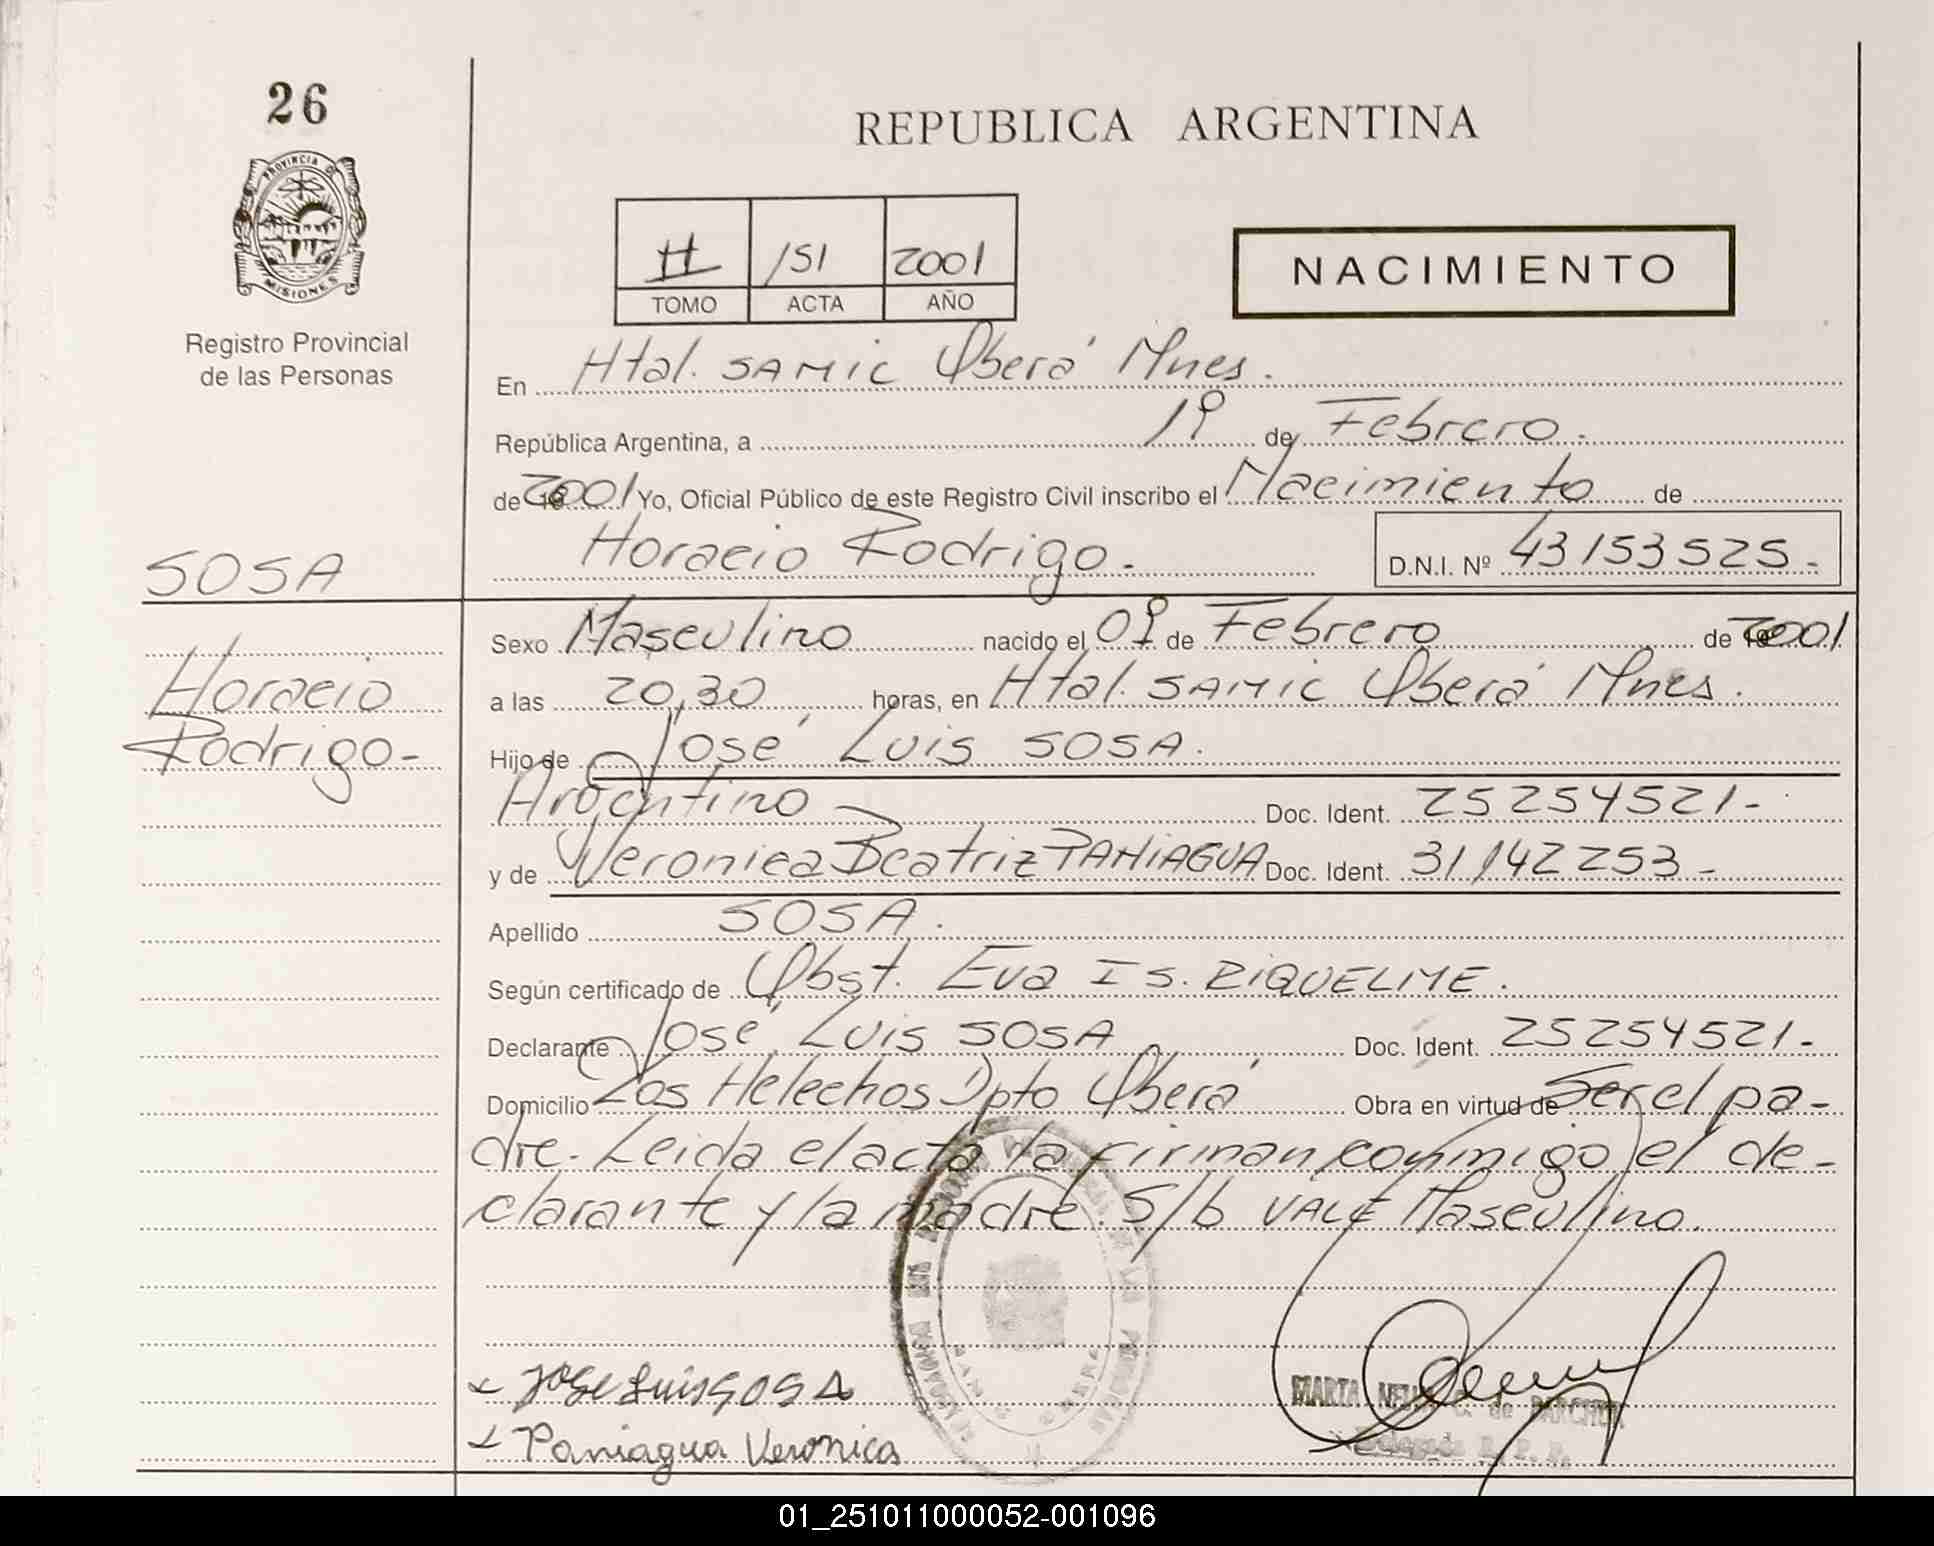 26
PROVINCIA D
MISIONES
Registro Provincial
de las Personas
REPUBLICA ARGENTINA
II 151 2001
TOMO ACTA AÑO
NACIMIENTO
En Htal. SAMIC Oberá Mnes.
República Argentina, a 1º de Febrero.
de 2001 Yo, Oficial Público de este Registro Civil inscribo el Nacimiento de
Horacio Rodrigo.
D.N.I. Nº 43153525-
SOSA
Horacio
Rodrigo-
Sexo Masculino nacido el 01º de Febrero de 2001
a las 20,30 horas, en Htal. SAMIC Oberá Mnes.
Hijo de José Luis SOSA.
Argentino Doc. Ident. 25254521-
y de Veronica Beatriz PANIAGUA Doc. Ident. 31142253-
Apellido SOSA.
Según certificado de Obst. Eva Is. RIQUELME.
Declarante José Luis SOSA Doc. Ident. 25254521-
Domicilio Los Helechos Dpto Oberá Obra en virtud de Ser el pa-
dre. Leida el acta la firman conmigo el de-
clarante y la madre. S/b VALE Masculino.
x Jose Luis SOSA
x Paniagua Veronica
MARTA de
Delegada R. P. P.
01_251011000052-001096